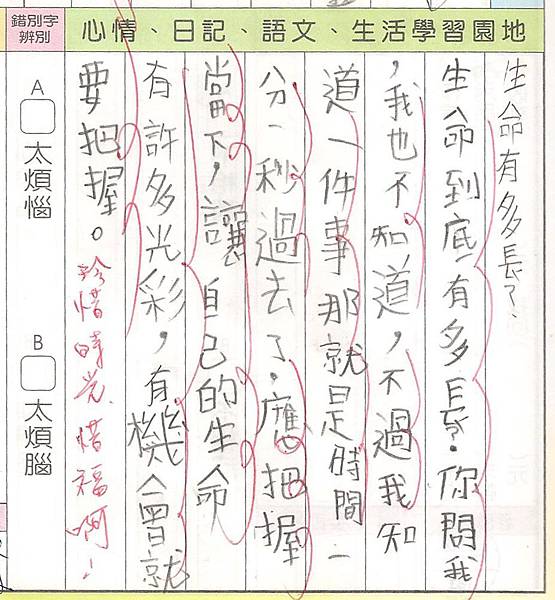 心情、日記、語文、生活學習園地
錯別字
辨別
生命有多長？
生命到底有多長？你問我
，我也不知道，不過我知
道一件事那就是時間一
分一秒過去了，應把握
當下，讓自己的生命
有許多光彩，有機會就
要把握。珍惜時光、惜福啊！
A □ 太煩惱
B □ 太煩腦